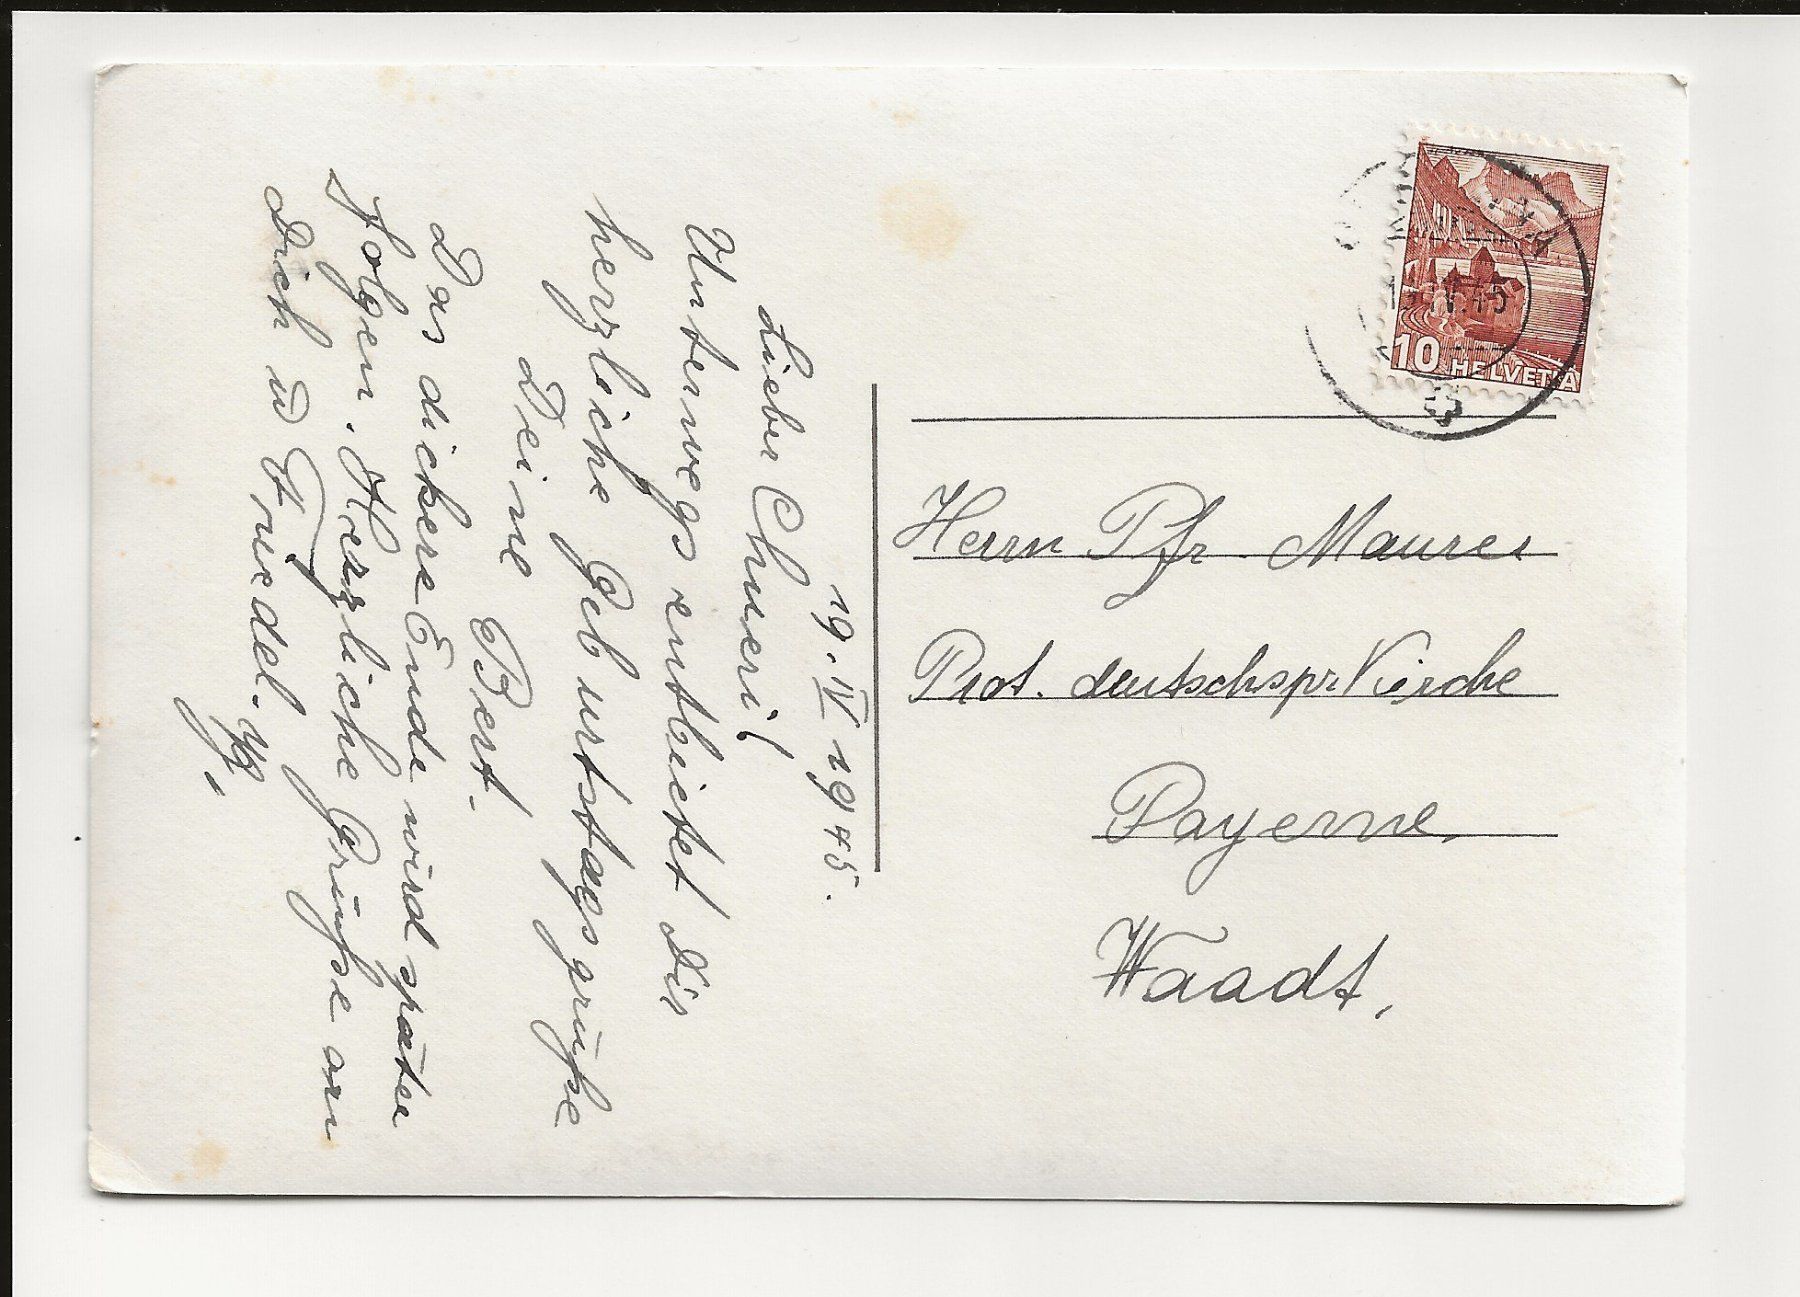 19. IV 1945.
Lieber Chueri!
Unterwegs entbietet Dir
herzliche Geburtstagsgrüße
Deine
Bert.
Das dickere Ende wird später
folgen. Herzliche Grüße an
Dich u Friedel.
10 HELVETIA
IV.45
Herrn Pfr. Maurer
Prot. deutschspr Kirche
Payerne,
Waadt,